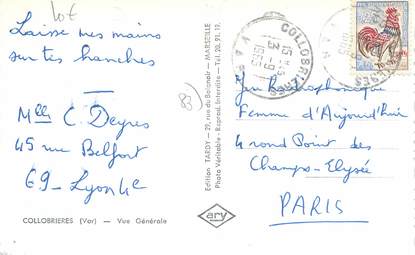 lot
Laisse mes mains
sur tes hanches
Melle C. Deyres
45 rue Belfort
69 - Lyon 4e
COLLOBRIERES (Var) — Vue Générale
83)
Edition TARDY - 29, rue du Baignoir - MARSEILLE
Photo Véritable - Reprod. Interdite - Tél. 20.91.19.
ary
COLLOBRIERES
VAR
15 H
3 - 9
1965
Jeu Radiophonique
Femme d'Aujourd'hui
4 rond Point des
Champs-Elysée
PARIS